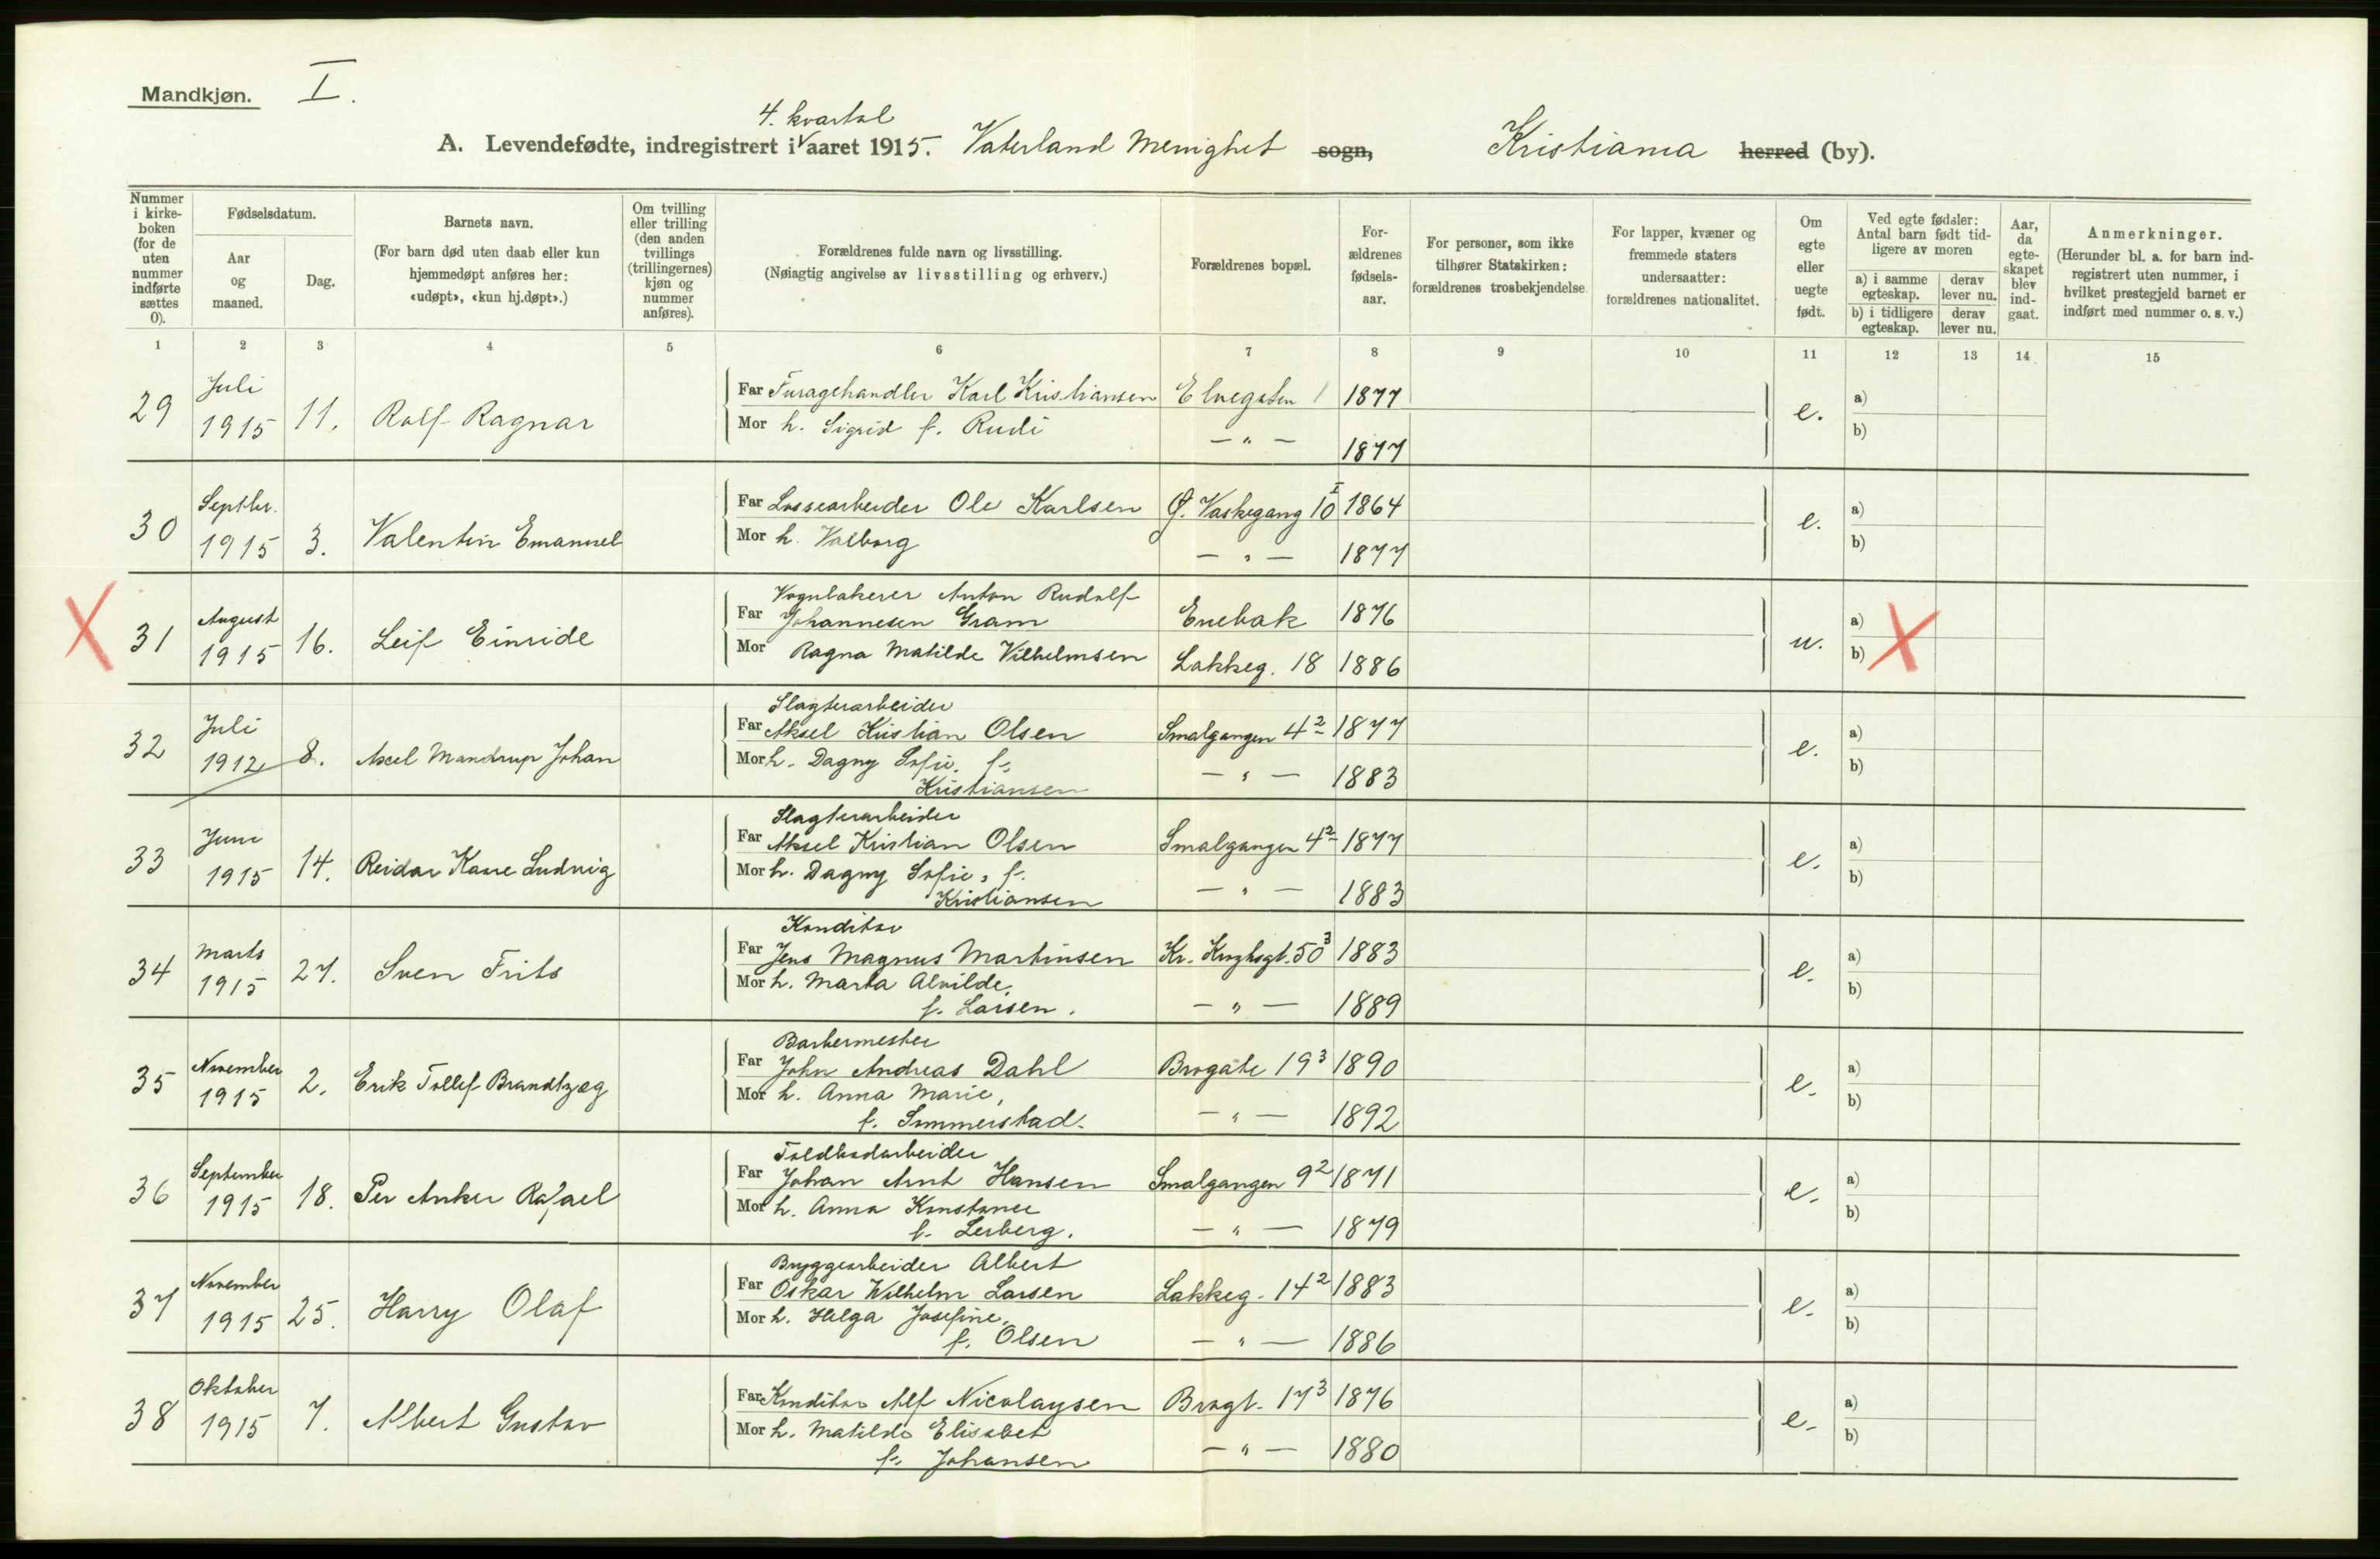 Mandkjøn. I.
4. kvartal
A. Levendefødte, indregistrert i aaret 1915. Vaterland Menighet sogn, Kristiania herred (by).
Nummer i kirke-boken (for de uten nummer indførte sættes 0).
Fødselsdatum.
Aar og maaned.
Dag.
Barnets navn.
(For barn død uten daab eller kun hjemmedøpt anføres her: «udøpt», «kun hj.døpt».)
Om tvilling eller trilling (den anden tvillings (trillingernes) kjøn og nummer anføres).
Forældrenes fulde navn og livsstilling.
(Nøiagtig angivelse av livsstilling og erhverv.)
Forældrenes bopæl.
For-ældrenes fødsels-aar.
For personer, som ikke tilhører Statskirken: forældrenes trosbekjendelse.
For lapper, kvæner og fremmede staters undersaatter: forældrenes nationalitet.
Om egte eller uegte født.
Ved egte fødsler: Antal barn født tid-ligere av moren
a) i samme egteskap.
derav lever nu.
b) i tidligere egteskap.
derav lever nu.
Aar, da egte-skapet blev ind-gaat.
Anmerkninger.
(Herunder bl. a. for barn ind-registrert uten nummer, i hvilket prestegjeld barnet er indført med nummer o. s. v.)
1 2 3 4 5 6 7 8 9 10 11 12 13 14 15
29 Juli 1915 11. Rolf Ragnar
Far Furagehandler Karl Kristiansen Elvegaten 1 1877
Mor h. Sigrid f. Rudi — " — 1877
e. a) b)
30 Septbr. 1915 3. Valentin Emanuel
Far Lossearbeider Ole Karlsen Ø. Vaskegang 10 I 1864
Mor h. Valborg — " — 1877
e. a) b)
X 31 August 1915 16. Leif Einride
Vognlakerer Anton Rudolf
Far Johannesen Gram Enebak 1876
Mor Ragna Matilde Vilhelmsen Lakkeg. 18 1886
u. a) b) X
32 Juli 1912 8. Axel Mandrup Johan
Slagterarbeider
Far Aksel Kristian Olsen Smalgangen 4 2 1877
Mor h. Dagny Sofie, f. — " — 1883
Kristiansen
e. a) b)
33 Juni 1915 14. Reidar Kaare Ludvig
Slagterarbeider
Far Aksel Kristian Olsen Smalgangen 4 2 1877
Mor h. Dagny Sofie, f. — " — 1883
Kristiansen
e. a) b)
34 Marts 1915 27. Sven Frits
Konditor
Far Jens Magnus Martinsen Kr. Kroghsgt. 50 3 1883
Mor h. Marta Alvilde,
f. Larsen. — " — 1889
e. a) b)
35 November 1915 2. Erik Tollef Brandtzæg
Barbermester
Far John Andreas Dahl Brogate 19 3 1890
Mor h. Anna Marie,
f. Simmerstad. — " — 1892
e. a) b)
36 September 1915 18. Per Anker Rafael
Toldbodarbeider
Far Johan Arnt Hansen Smalgangen 9 2 1871
Mor h. Anna Konstance
f. Lerberg. — " — 1879
e. a) b)
37 November 1915 25. Harry Olaf
Bryggearbeider Albert
Far Oskar Wilhelm Larsen Lakkeg. 14 2 1883
Mor h. Helga Josefine,
f. Olsen — " — 1886
e. a) b)
38 Oktober 1915 7. Albert Gustav
Far Konditor Alf Nicolaysen Brogt. 17 3 1876
Mor h. Matilde Elisabet
f. Johansen — " — 1880
e. a) b)